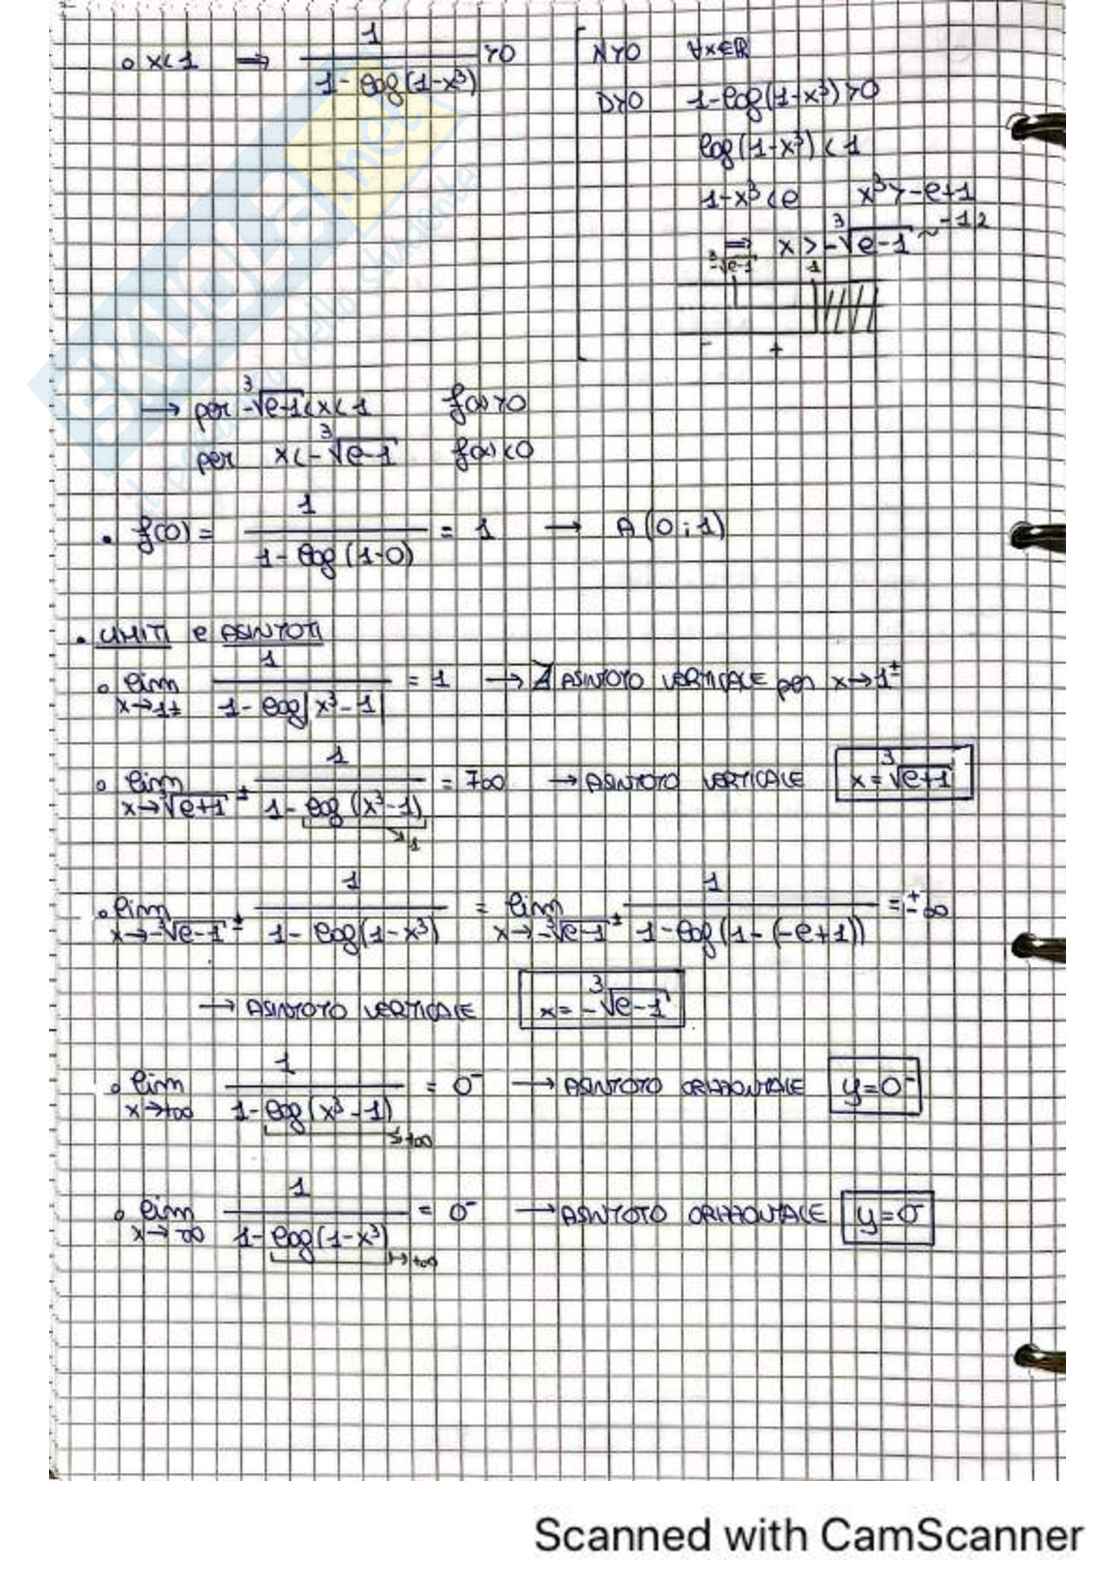 ∘ x<1 ⟹ 1/(1-log(1-x³)) >0
N>0 ∀x∈ℝ
D>0 1-log(1-x³)>0
log(1-x³)<1
1-x³<e x³>-e+1
⟹ x>-∛(e-1) ~ -1,2
-∛(e-1) 1
- +
→ per -∛(e-1)<x<1 f(x)>0
per x<-∛(e-1) f(x)<0
• f(0) = 1/(1-log(1-0)) = 1 → A(0;1)
• LIMITI e ASINTOTI
∘ lim x→1± 1/(1-log|x³-1|) = 1 → ∄ ASINTOTO VERTICALE per x→1±
∘ lim x→∛(e+1)± 1/(1-log(x³-1)) = ∓∞ → ASINTOTO VERTICALE x=∛(e+1)
→1
∘ lim x→-∛(e-1)± 1/(1-log(1-x³)) = lim x→-∛(e-1)± 1/(1-log(1-(-e+1))) = ±∞
→ ASINTOTO VERTICALE x=-∛(e-1)
∘ lim x→+∞ 1/(1-log(x³-1)) = 0⁻ → ASINTOTO ORIZZONTALE y=0⁻
→+∞
∘ lim x→-∞ 1/(1-log(1-x³)) = 0⁻ → ASINTOTO ORIZZONTALE y=0⁻
→+∞
Scanned with CamScanner